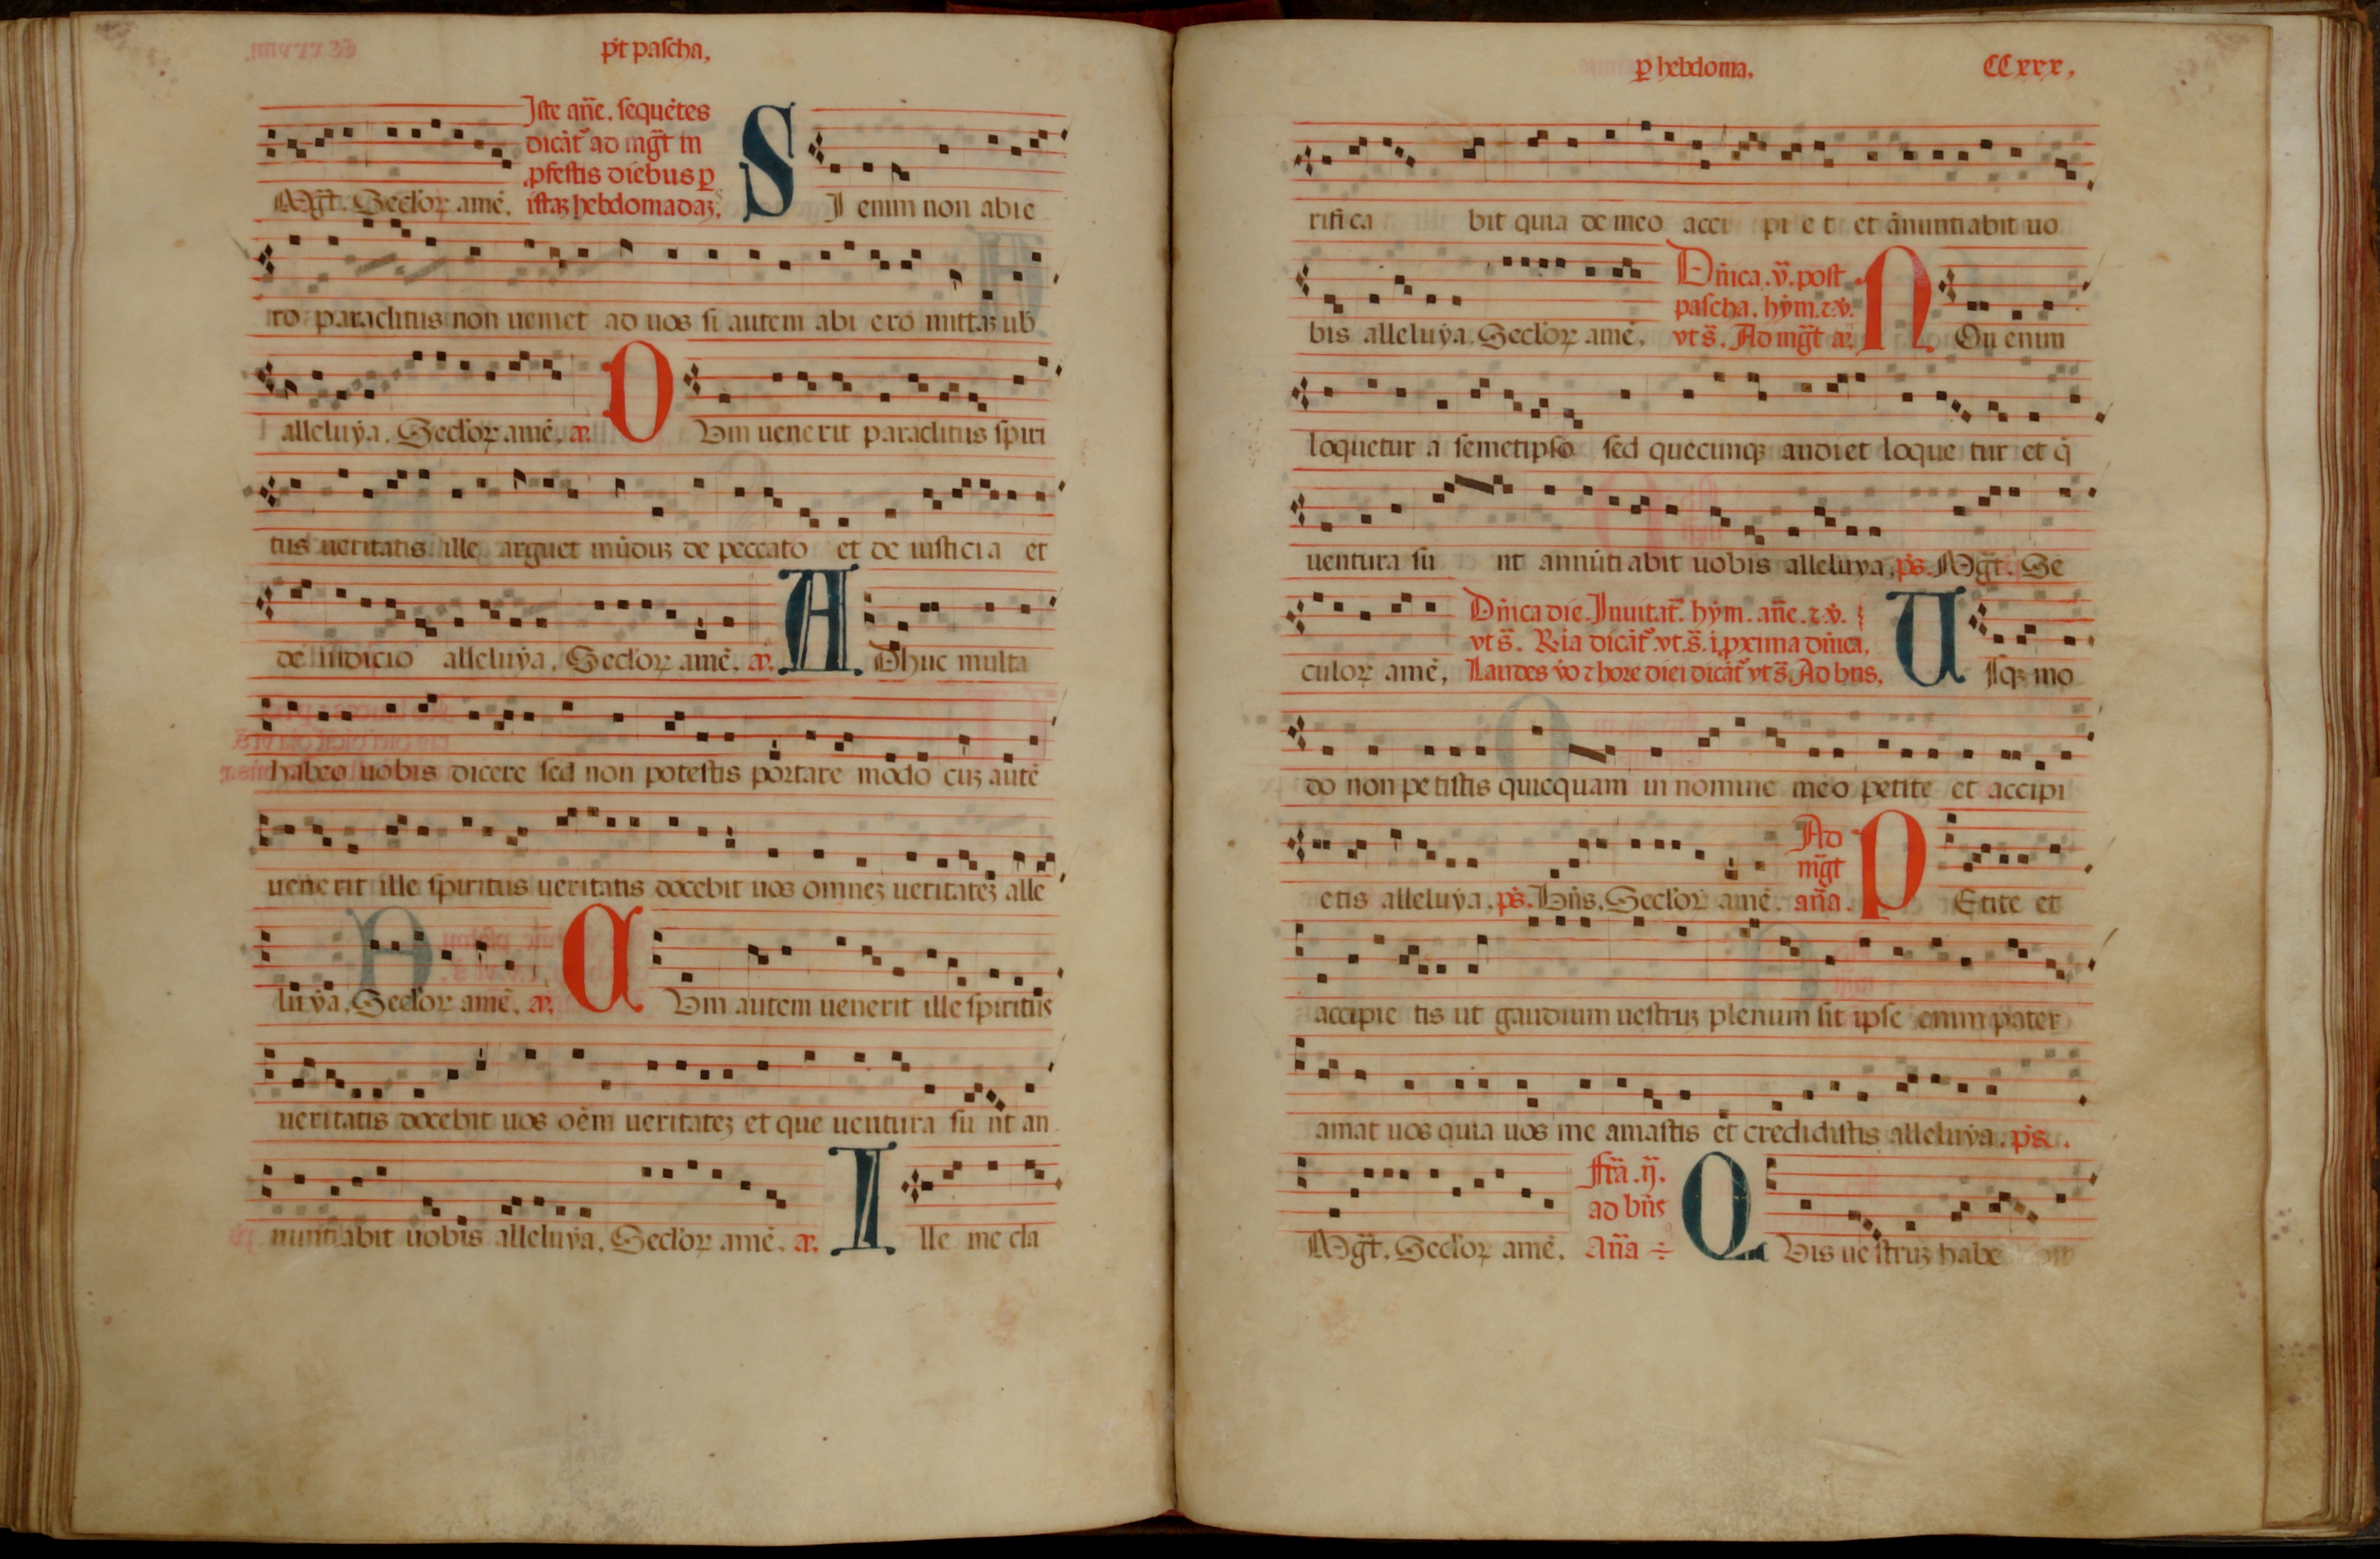 p̄t paſcha,
Iſte an̄e. ſequētes
dicāt᷑ ad mḡt in
ꝓfeſtis diebus ꝑ
iſtaꝫ hebdomadaꝫ.
Mḡt. Seclōꝝ amē. S I enim non abie
ro paraclitus non ueniet ad uos ſi autem abi ero mittaꝫ ub̄
alleluẏa. Seclōꝝ amē. D Vm uenerit paraclitus ſpiri
tus ueritatis ille arguet mūduꝫ de peccato et de iuſticia et
de iudicio alleluẏa. Seclōꝝ amē. A Dhuc multa
habeo uobis dicere ſed non poteſtis portare modo cuꝫ autē
uenerit ille ſpiritus ueritatis docebit uos omneꝫ ueritateꝫ alle
luẏa. Seclōꝝ amē. C Vm autem uenerit ille ſpiritus
ueritatis docebit uos oēm ueritateꝫ et que uentura ſu nt an
nuntiabit uobis alleluẏa. Seclōꝝ amē. I lle me cla
ꝑ hebdoma. CCxxx,
rifi ca bit quia de meo acci pi e t et ānuntiabit uo
Dn̄ica .v̄. poſt
paſcha. hẏm. ⁊ v̄.
vt s̄. Ad mḡt
bis alleluẏa. Seclōꝝ amē. N On enim
loquetur a ſemetipſo ſed quecunqꝫ audiet loque tur et q̄
uentura ſu nt annūti abit uobis alleluya. pṡ. Mḡt. Se
Dn̄ica die. Inuitat᷑. hẏm. an̄e. ⁊ v̄.
vt s̄. Rͥia dicāt᷑ vt s̄. ī ꝓxima dn̄ica.
Laudes v̄o ⁊ hore diei dicāt᷑ vt s̄. Ad bn̄s.
culoꝝ amē, U ſqꝫ mo
do non pe tiſtis quicquam in nomine meo petite et accipi
Ad
mḡt
an̄a.
etis alleluẏa. pṡ. Bn̄s. Seclōꝝ amē. P Etite et
accipie tis ut gaudium ueſtruꝫ plenum ſit ipſe enim pater
amat uos quia uos me amaſtis et credidiſtis alleluẏa. pṡ.
Fr̄a .ij.
ad bn̄s
An̄a
Mḡt. Seclōꝝ amē. Q Vis ue ſtruꝫ habe